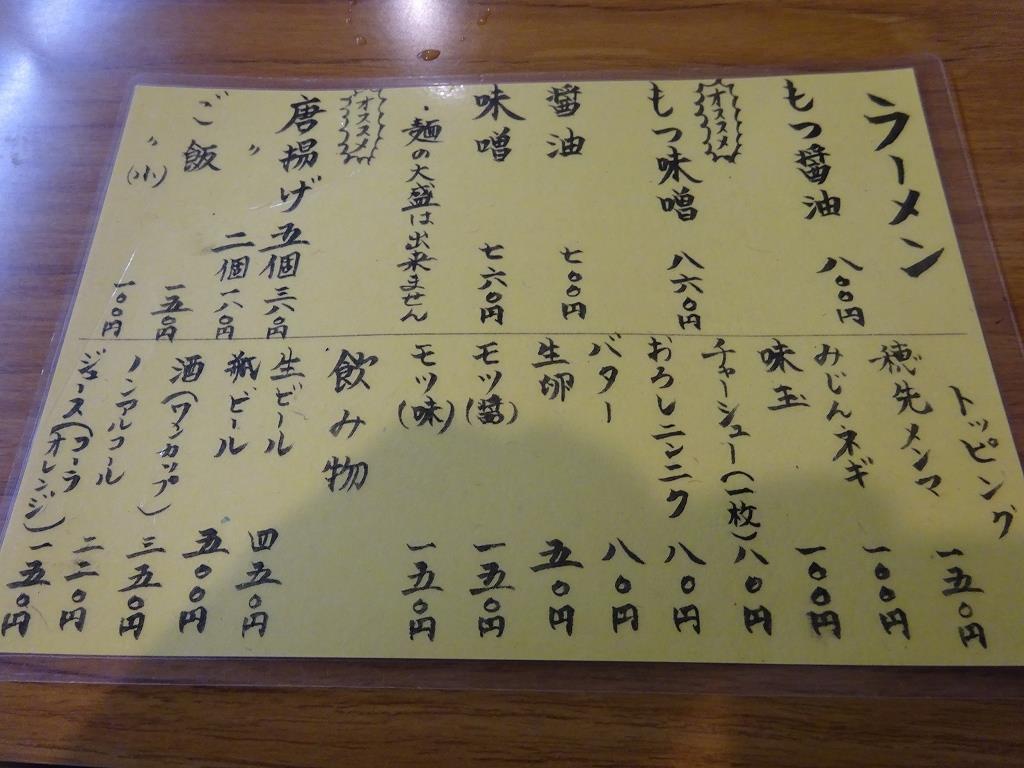 ラーメン
もつ醤油 八〇〇円
オススメ
もつ味噌 八六〇円
醤油 七〇〇円
味噌 七六〇円
・麺の大盛は出来ません
オススメ
唐揚げ 五個 三六〇円
〃 二個 一八〇円
ご飯 一五〇円
〃(小) 一〇〇円
トッピング
穂先メンマ 一五〇円
みじんネギ 一〇〇円
味玉 一〇〇円
チャーシュー(一枚) 八〇円
おろしニンニク 八〇円
バター 八〇円
生卵 五〇円
モツ(醤) 一五〇円
モツ(味) 一五〇円
飲み物
生ビール 四五〇円
瓶ビール 五〇〇円
酒(ワンカップ) 三五〇円
ノンアルコール 二二〇円
ジュース(コーラ オレンジ) 一五〇円